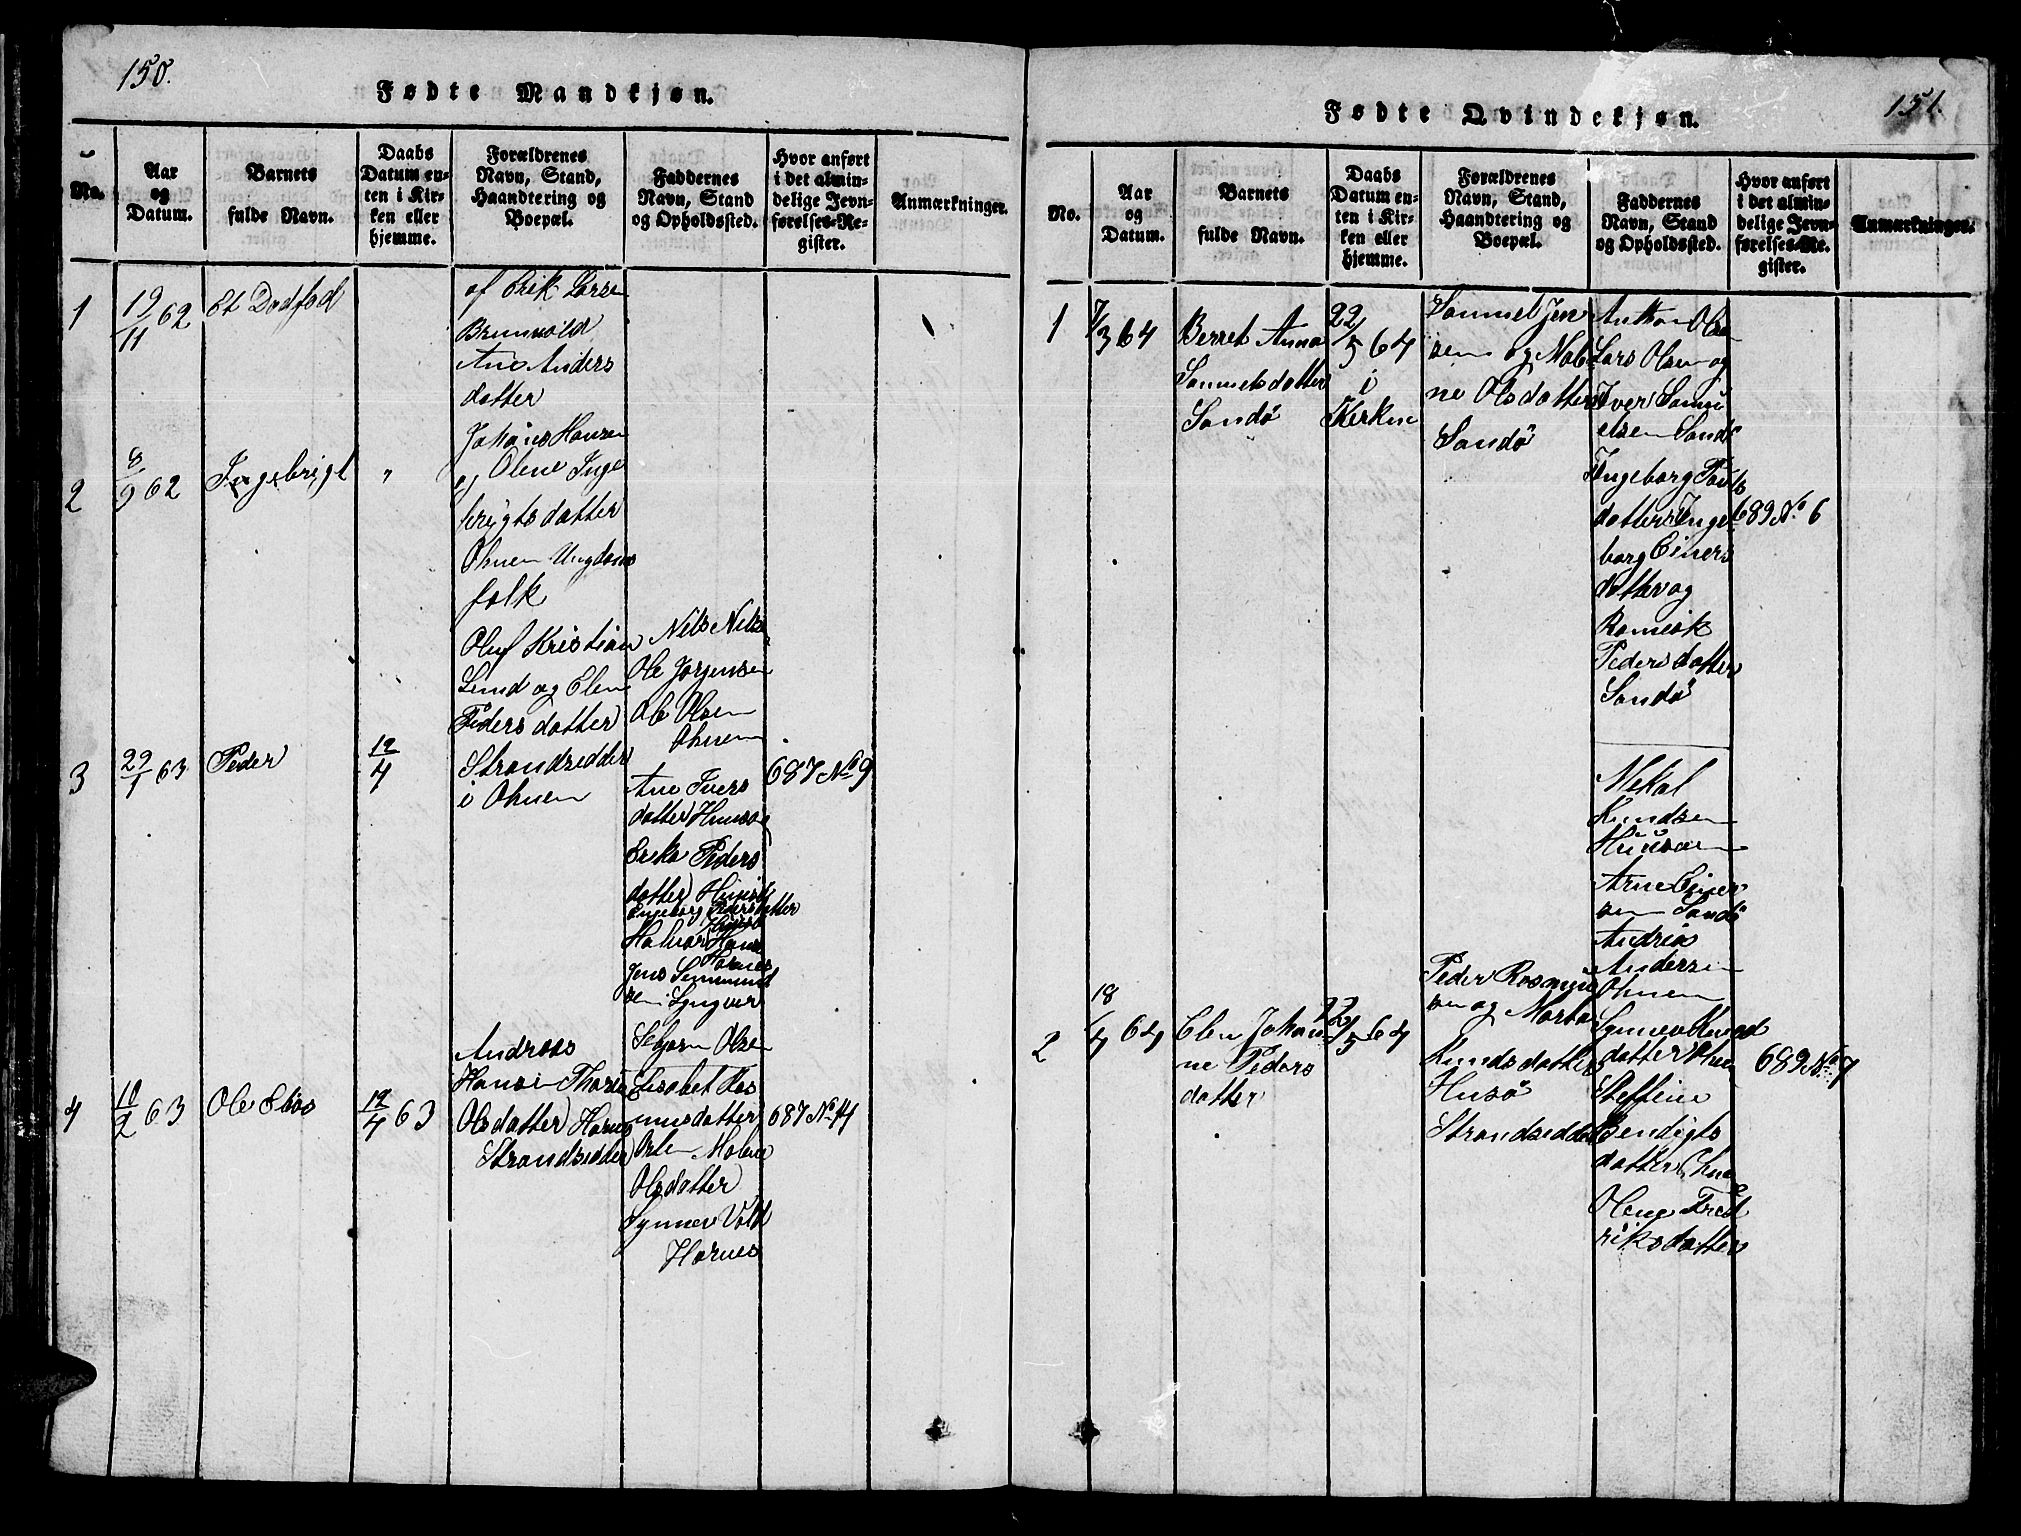 150.
Fødte Mandkjøn.
No.
Aar
og
Datum.
Barnets
fulde Navn.
Daabs
Datum en-
ten i Kir-
ken eller
hjemme.
Forældrenes
Navn, Stand,
Haandtering og
Boepæl.
Faddernes
Navn, Stand
og Opholdssted.
Hvor anført
i det almin-
delige Jevn-
førelses-Re-
gister.
Anmærkninger.
1
19/11 62
Et Dødfød
af Erik Larsen
Brunvold
Ane Anders
datter
2
8/9 62
Ingebrigt
"
Johans Hansen
og Olene Inge
brigts datter
Ohnen Ungdoms
folk
3
29/1 63
Peder
12/4
Oluf Kristian
Lund og Elen
Peders datter
Strandsedder
i Ohnen
Nels Nels
Ole Jørgensen
Ole Olsen
Ohnen
Ane Ivers
datter Husø og
Erika Peders
datter Husø
Ingeborg Pedersdatter
Husø
Halvor Hans
Hornes
Jens Simmund
sen Lyngver
687 No 9
4
10/2 63
Ole Elias
12/4 63
Andreas
Hansen Thorse
Olsdatter Hornes
Strandsedder
Sebjørn Olsen
Elisabet Ras
musdatter
Molene
Olsdatter
Synnev Vold
Hornes
687 No 14
151.
Fødte Qvindekjøn.
No.
Aar
og
Datum.
Barnets
fulde Navn.
Daabs
Datum en-
ten i Kir-
ken eller
hjemme.
Forældrenes
Navn, Stand,
Haandtering og
Boepæl.
Faddernes
Navn, Stand
og Opholdssted.
Hvor anført
i det almin-
delige Jevn-
førelses-Re-
gister.
Anmærkninger.
1
7/3 64
Berret Anna
Samuelsdatter
Sandø
22/5 64
i
Kerken
Samuel Jen
sen og Mab
ne Olsdatter
Sandø
Anthon Olsen
Lars Olsen og
Iver Samu
elsen Sandø
Ingeborg Pauls
datter Inge
borg Einers
datter og
Ramesk
Peders datter
Sandø
689 No 6
2
18/4 64
Elen Johan
ne Peders
datter
22/5 64
Peder Rasmus
sen og Marta
Knudsdatter
Husø
Strandsedder
Mekal
Knudsen
Huusøen
Arne Einer
sen Sandø
Andreas
Andersen
Ohnen
Synnev Knud
datter Ohnen
Steffine
Bendigts
datter Ohnen
Olene Fred
riksdatter
689 No 7